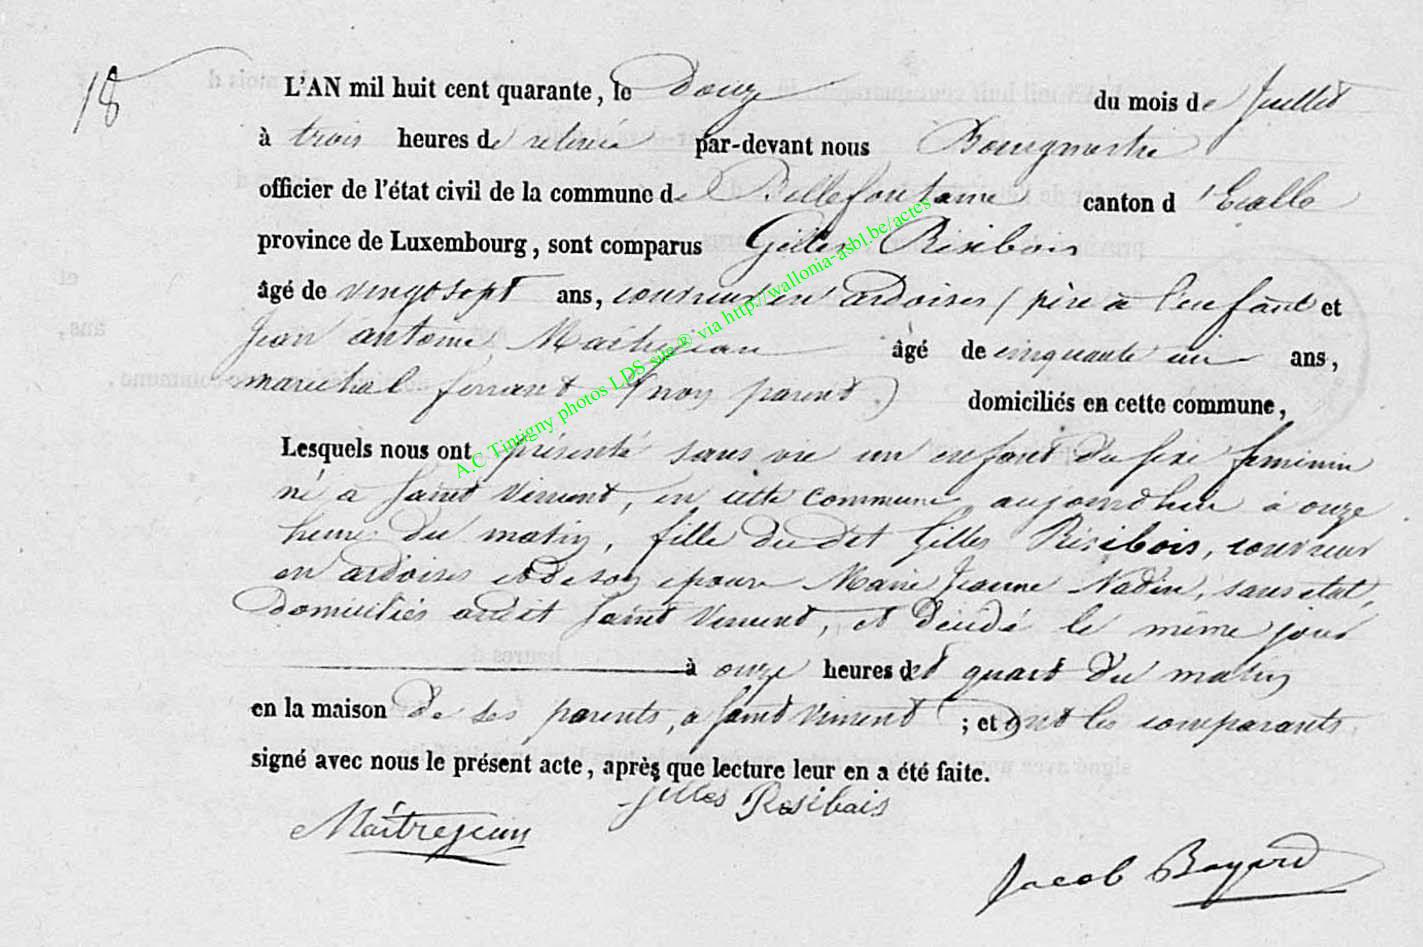 18
L'AN mil huit cent quarante, le Douze du mois de Juillet
à trois heures de relevée par-devant nous Bourgmestre
officier de l'état civil de la commune de Bellefontaine canton d'Etalle
province de Luxembourg, sont comparus Gilles Résibois
âgé de vingt sept ans, couvreur en ardoises (père à l'enfant et
Jean antoine Maitrejean âgé de cinquante un ans,
maréchal ferrant (non parent.) domiciliés en cette commune,
Lesquels nous ont présenté sans vie un enfant du sexe feminin
né à Saint Vincent, en cette commune aujourdhui à onze
heure du matin, fille du dit Gilles Résibois, couvreur
en ardoises et de son epouse Marie Jeanne Nadin, sans etat,
domiciliés audit Saint Vincent, et décédé le même jour
à onze heures et quart du matin
en la maison de ses parents, a Saint Vincent ; et ont les comparants
signé avec nous le présent acte, après que lecture leur en a été faite.
Gilles Résibois
Maitrejean
Jacob Bayard
A.C Tintigny photos LDS sur ® via http://wallonia-asbl.be/actes